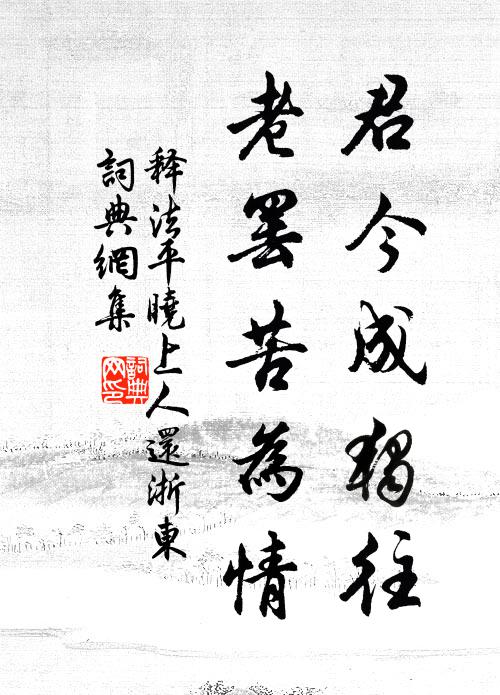 君今成獨往
老罷苦為情
释法平曉上人還浙東
詞典網集
詞典
网印